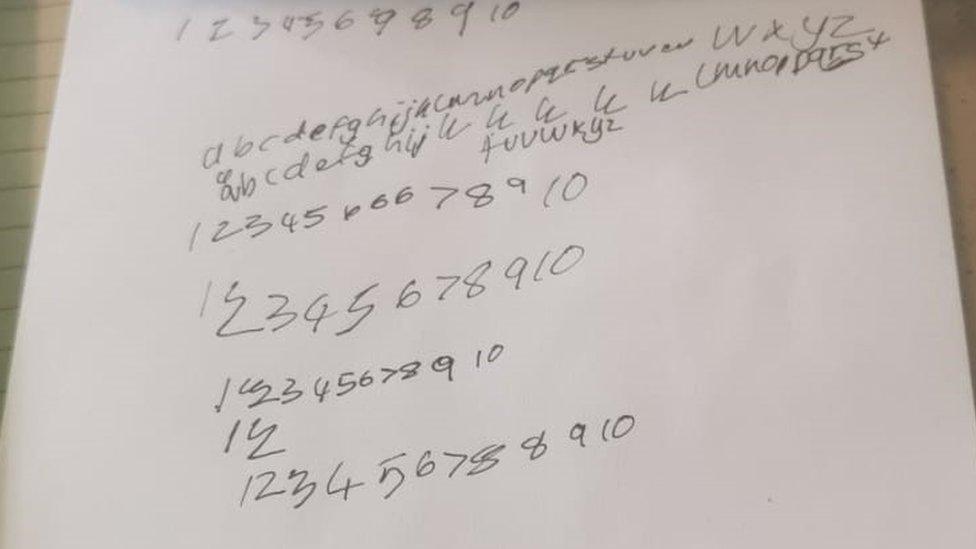 1 2 3 4 5 6 9 8 9 10
a b c d e f g h i j k l m n o p q r s t u v w W x y z
a b c d e f g h i j k k k k k l m n o p q r s t
t u v w x y z
1 2 3 4 5 6 6 6 7 8 9 10
1 2 3 4 5 6 7 8 9 10
1 2 3 4 5 6 7 8 9 10
1 2
1 2 3 4 5 6 7 8 8 9 10